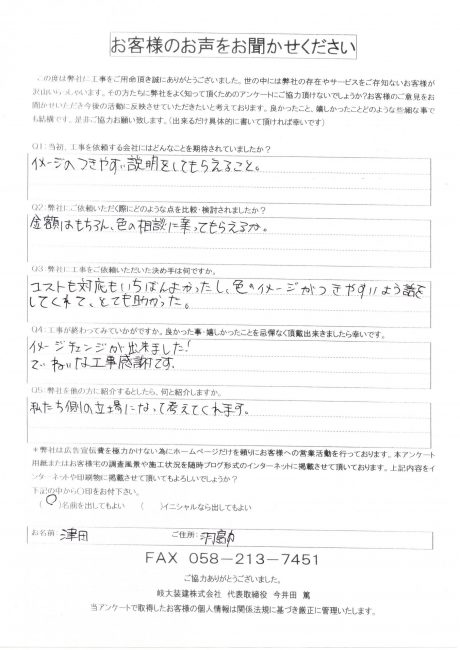 お客様のお声をお聞かせください
この度は弊社に工事をご用命頂き誠にありがとうございました。世の中には弊社の存在やサービスをご存知ないお客様が
沢山いらっしゃいます。その方たちに弊社をよく知って頂くためのアンケートにご協力頂けないでしょうか?お客様のご意見をお
聞かせいただき今後の活動に反映させていただきたいと考えております。良かったこと、嬉しかったことどのような些細な事で
も結構です。是非ご協力お願い致します。(出来るだけ具体的に書いて頂ければ幸いです)
Q1:当初、工事を依頼する会社にはどんなことを期待されていましたか?
イメージのつきやすい説明をしてもらえること。
Q2:弊社にご依頼いただく際にどのような点を比較・検討されましたか?
金額はもちろん、色の相談に乗ってもらえるか。
Q3:弊社に工事をご依頼いただいた決め手は何ですか。
コストも対応もいちばんよかったし、色のイメージがつきやすいよう話を
してくれて、とても助かった。
Q4:工事が終わってみていかがですか。良かった事・嬉しかったことを忌憚なく頂戴出来きましたら幸いです。
イメージチェンジが出来ました!
ていねいな工事感謝です。
Q5:弊社を他の方に紹介するとしたら、何と紹介しますか。
私たち側の立場になって考えてくれます。
*弊社は広告宣伝費を極力かけない為にホームページだけを頼りにお客様への営業活動を行っております。本アンケート
用紙またはお客様宅の調査風景や施工状況を随時ブログ形式のインターネットに掲載させて頂いております。上記内容をイ
ンターネットや印刷物に掲載させて頂いてもよろしいでしょうか?
下記の中から〇印をお付下さい。
(〇)名前を出してもよい ( )イニシャルなら出してもよい
お名前: 津田 ご住所:
FAX 058-213-7451
ご協力ありがとうございました。
岐大装建株式会社 代表取締役 今井田 篤
当アンケートで取得したお客様の個人情報は関係法規に基づき厳正に管理いたします。